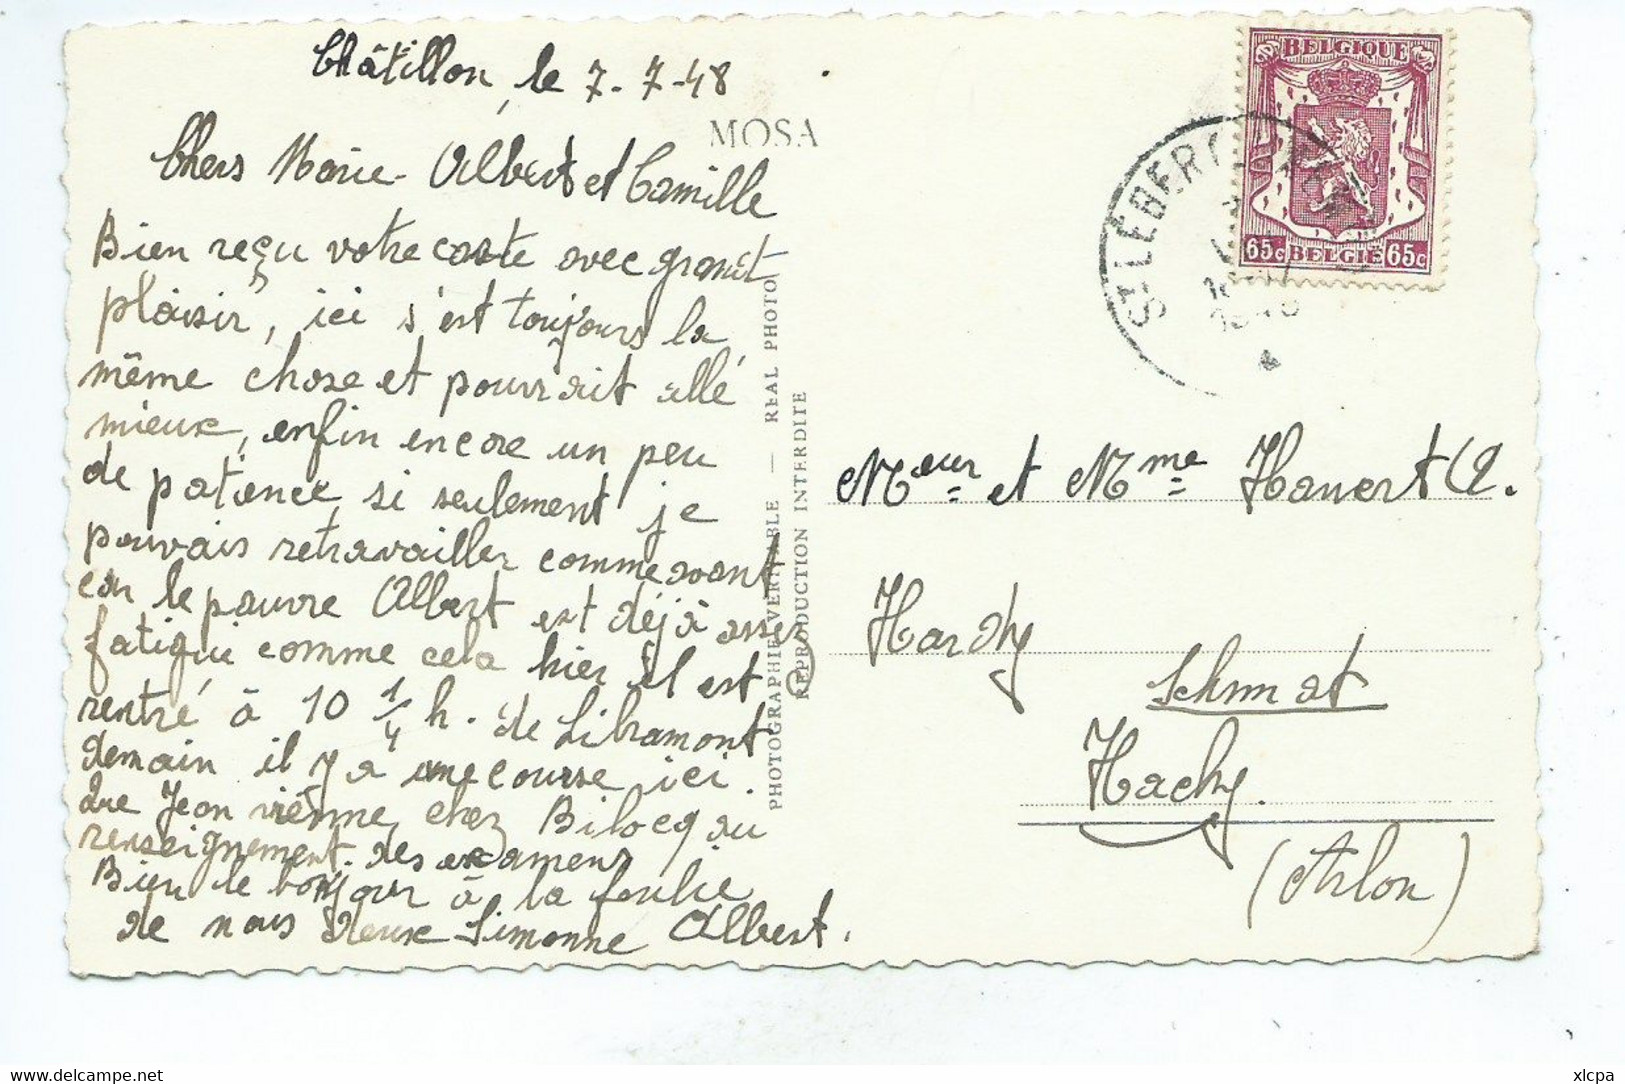 Châtillon, le 7-7-48
MOSA
Chers Marie- Albert et Camille
Bien reçu votre carte avec grand
plaisir, ici s'est toujours la
même chose et pourrait allé
mieux, enfin encore un peu
de patience, si seulement je
pouvais retravailler comme avant
car le pauvre Albert est déjà assez
fatigué comme cela hier il est
rentré à 10 1/4 h. de Libramont
demain il y a une course ici.
Que Jean vienne chez Bilocq au
renseignement des examens
Bien le bonjour à la
de nous deux Simonne Albert.
PHOTOGRAPHIE VERITABLE — REAL PHOTO
REPRODUCTION INTERDITE
BELGIQUE
65c BELGIE 65c
ST-LÉGER
Meur et Mme Hanert A.
Hardy
Schmat
Hachy.
(Arlon)
delcampe.net
xlcpa